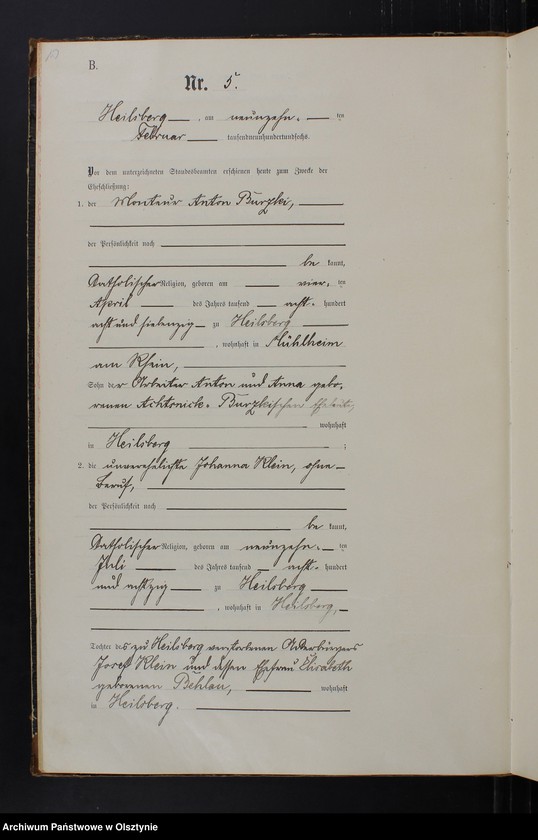 B.
Nr. 5.
Heilsberg, am neunzehn-ten
Februar tausendneunhundertundsechs.
Vor dem unterzeichneten Standesbeamten erschienen heute zum Zwecke der
Eheschließung:
1. der Monteur Anton Burzki,
der Persönlichkeit nach
be kannt,
Katholischer Religion, geboren am vier-ten
April des Jahres tausend acht- hundert
acht und siebenzig zu Heilsberg
, wohnhaft in Mühlheim
am Rhein,
Sohn der Arbeiter Anton und Anna gebo-
renen Achtonick- Burzkischen Eheleute,
wohnhaft
in Heilsberg ;
2. die unverehelichte Johanna Klein, ohne
Beruf,
der Persönlichkeit nach
be kannt,
Katholischer Religion, geboren am neunzehn-ten
Juli des Jahres tausend acht- hundert
und achtzig zu Heilsberg
, wohnhaft in Heilsberg,
Tochter des zu Heilsberg verstorbenen Ackerbürgers
Josef Klein und dessen Ehefrau Elisabeth
geborenen Behlau, wohnhaft
in Heilsberg.
Archiwum Państwowe w Olsztynie